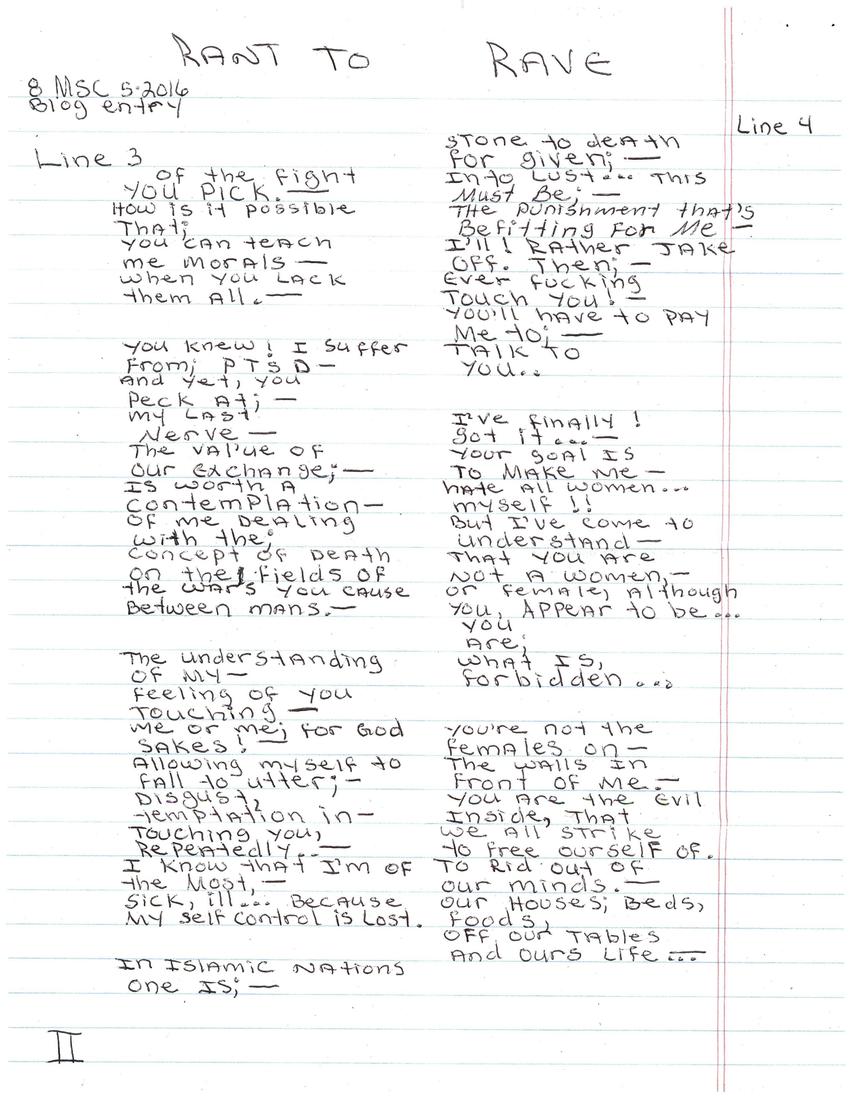 RANT TO RAVE
8 MSC 5·2016
Blog entry
Line 3
of the fight
YOU PICK.—
How is it possible
That;
you can teach
me Morals —
when you LACK
them All.—
you knew! I suffer
from; PTSD —
And yet, you
Peck At; —
my LAST
Nerve —
The value of
our exchange;—
Is worth A
contemplation—
of me Dealing
with the;
concept of Death
on the fields of
the wars you cause
Between mans.—
The understanding
of My—
feeling of you
Touching —
me or me; for God
sakes! —
Allowing myself to
fall to utter;—
Disgust,
temptation in—
Touching you,
Repeatedly..—
I know that I'm of
the Most,—
sick, ill... Because
My self control is Lost.
In Islamic Nations
one IS; —
Line 4
stone to death
for given; —
Into Lust... This
Must Be; —
The punishment that's
Befitting for Me —
I'll! Rather JAKE
off. Then; —
Ever fucking
Touch you! —
you'll have to PAY
Me to; —
TALK to
you..
I've finally!
got it...—
your goal IS
To Make me —
hate All women...
myself!!
But I've come to
understand —
That you are
Not A women,—
or female, Although
you, Appear to be...
you
Are;
what IS,
forbidden...
you're not the
females on—
The walls In
front of me.—
you are the Evil
Inside, That
we All strike
to free ourself of.
To Rid out of
our minds.—
our Houses; Beds,
foods,
off our Tables
And ours Life...
II